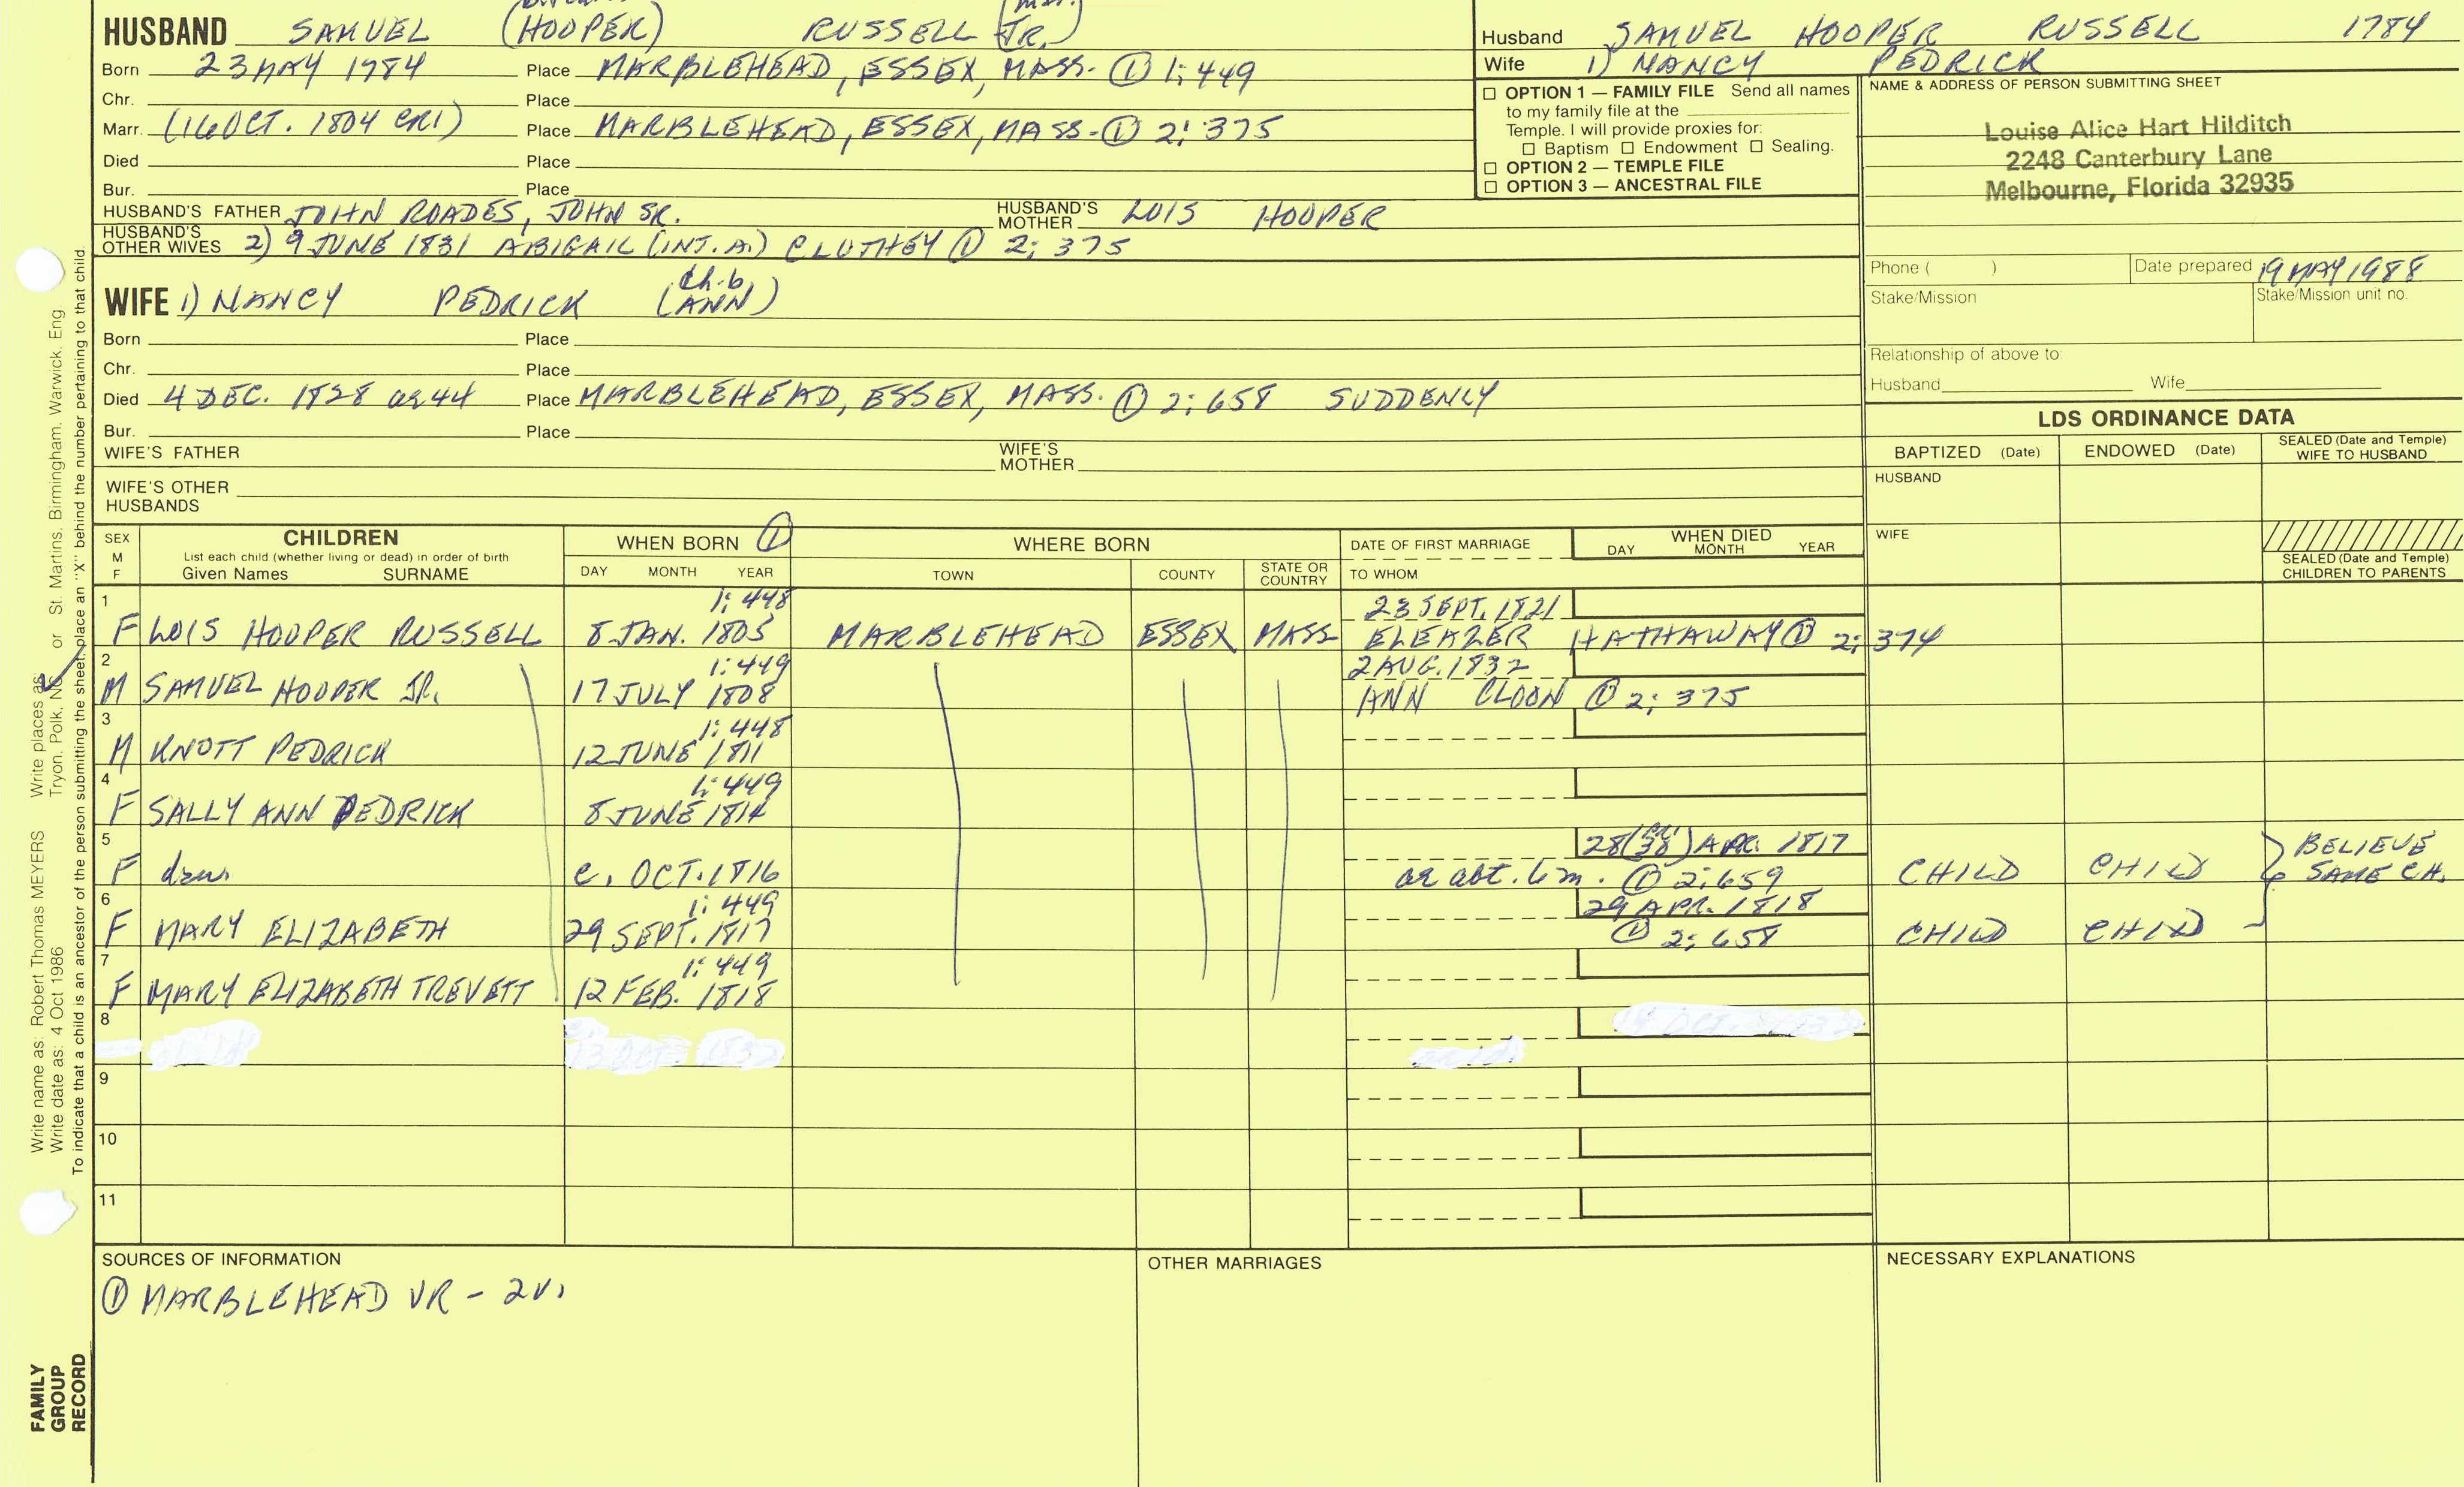 HUSBAND SAMUEL (HOOPER) RUSSELL (JR.)
Born 23 MAY 1784 Place MARBLEHEAD, ESSEX, MASS. ① 1:449
Chr. Place
Marr. (16 OCT. 1804 CR1) Place MARBLEHEAD, ESSEX, MASS. ① 2:375
Died Place
Bur. Place
HUSBAND'S FATHER JOHN ROADES, JOHN SR. HUSBAND'S MOTHER LOIS HOOPER
HUSBAND'S OTHER WIVES 2) 9 JUNE 1831 ABIGAIL (INT. A.) CLOTHEY ① 2:375
Ch. b.
WIFE 1) NANCY PEDRICK (ANN)
Born Place
Chr. Place
Died 4 DEC. 1828 ae 44 Place MARBLEHEAD, ESSEX, MASS. ① 2:658 SUDDENLY
Bur. Place
WIFE'S FATHER WIFE'S MOTHER
WIFE'S OTHER HUSBANDS
Husband SAMUEL HOOPER RUSSELL 1784
Wife 1) NANCY PEDRICK
□ OPTION 1 — FAMILY FILE Send all names
to my family file at the
Temple. I will provide proxies for:
□ Baptism □ Endowment □ Sealing.
□ OPTION 2 — TEMPLE FILE
□ OPTION 3 — ANCESTRAL FILE
NAME & ADDRESS OF PERSON SUBMITTING SHEET
Louise Alice Hart Hilditch
2248 Canterbury Lane
Melbourne, Florida 32935
Phone ( ) Date prepared 19 MAY 1988
Stake/Mission Stake/Mission unit no.
Relationship of above to:
Husband Wife
LDS ORDINANCE DATA
BAPTIZED (Date) ENDOWED (Date) SEALED (Date and Temple) WIFE TO HUSBAND
HUSBAND
WIFE
SEALED (Date and Temple) CHILDREN TO PARENTS
SEX M F CHILDREN WHEN BORN ① WHERE BORN DATE OF FIRST MARRIAGE WHEN DIED
List each child (whether living or dead) in order of birth DAY MONTH YEAR
Given Names SURNAME DAY MONTH YEAR TOWN COUNTY STATE OR COUNTRY TO WHOM
1 1:448 23 SEPT. 1821
F LOIS HOOPER RUSSELL 8 JAN. 1805 MARBLEHEAD ESSEX MASS ELEAZER HATHAWAY ① 2:374
2 1:449 2 AUG. 1832
M SAMUEL HOOPER JR. 17 JULY 1808 ANN CLOON ① 2:375
3 1:448
M KNOTT PEDRICK 12 JUNE 1811
4 1:449
F SALLY ANN PEDRICK 8 JUNE 1814
5 28 APR. 1817 BELIEVE
F dau. c. OCT. 1816 ae abt. 6 m. ① 2:659 CHILD CHILD SAME CH.
6 1:449 29 APR. 1818
F MARY ELIZABETH 29 SEPT. 1817 ① 2:658 CHILD CHILD
7 1:449
F MARY ELIZABETH TREVETT 12 FEB. 1818
8
9
10
11
SOURCES OF INFORMATION
① MARBLEHEAD VR - 2v.
OTHER MARRIAGES
NECESSARY EXPLANATIONS
Write name as: Robert Thomas MEYERS Write places as Tryon, Polk, NC or St. Martins, Birmingham, Warwick, Eng
Write date as: 4 Oct 1986
To indicate that a child is an ancestor of the person submitting the sheet, place an "X" behind the number pertaining to that child.
FAMILY
GROUP
RECORD